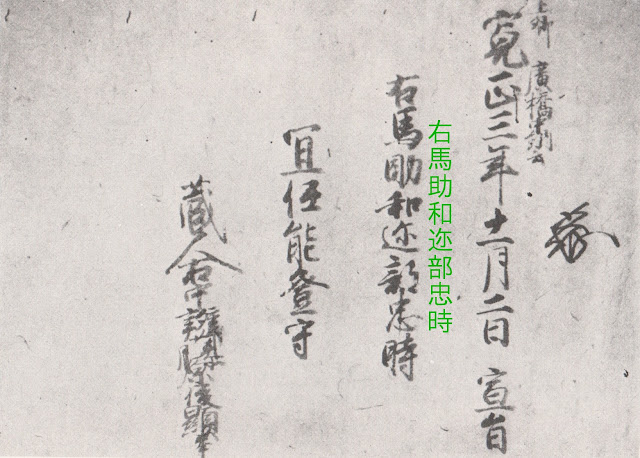 上卿 廣橋
寛正三年十一月二日 宣旨
右馬助和迩部忠時
右馬助和迩部忠時
宜任能登守
蔵人右中辨藤原俊顕奉